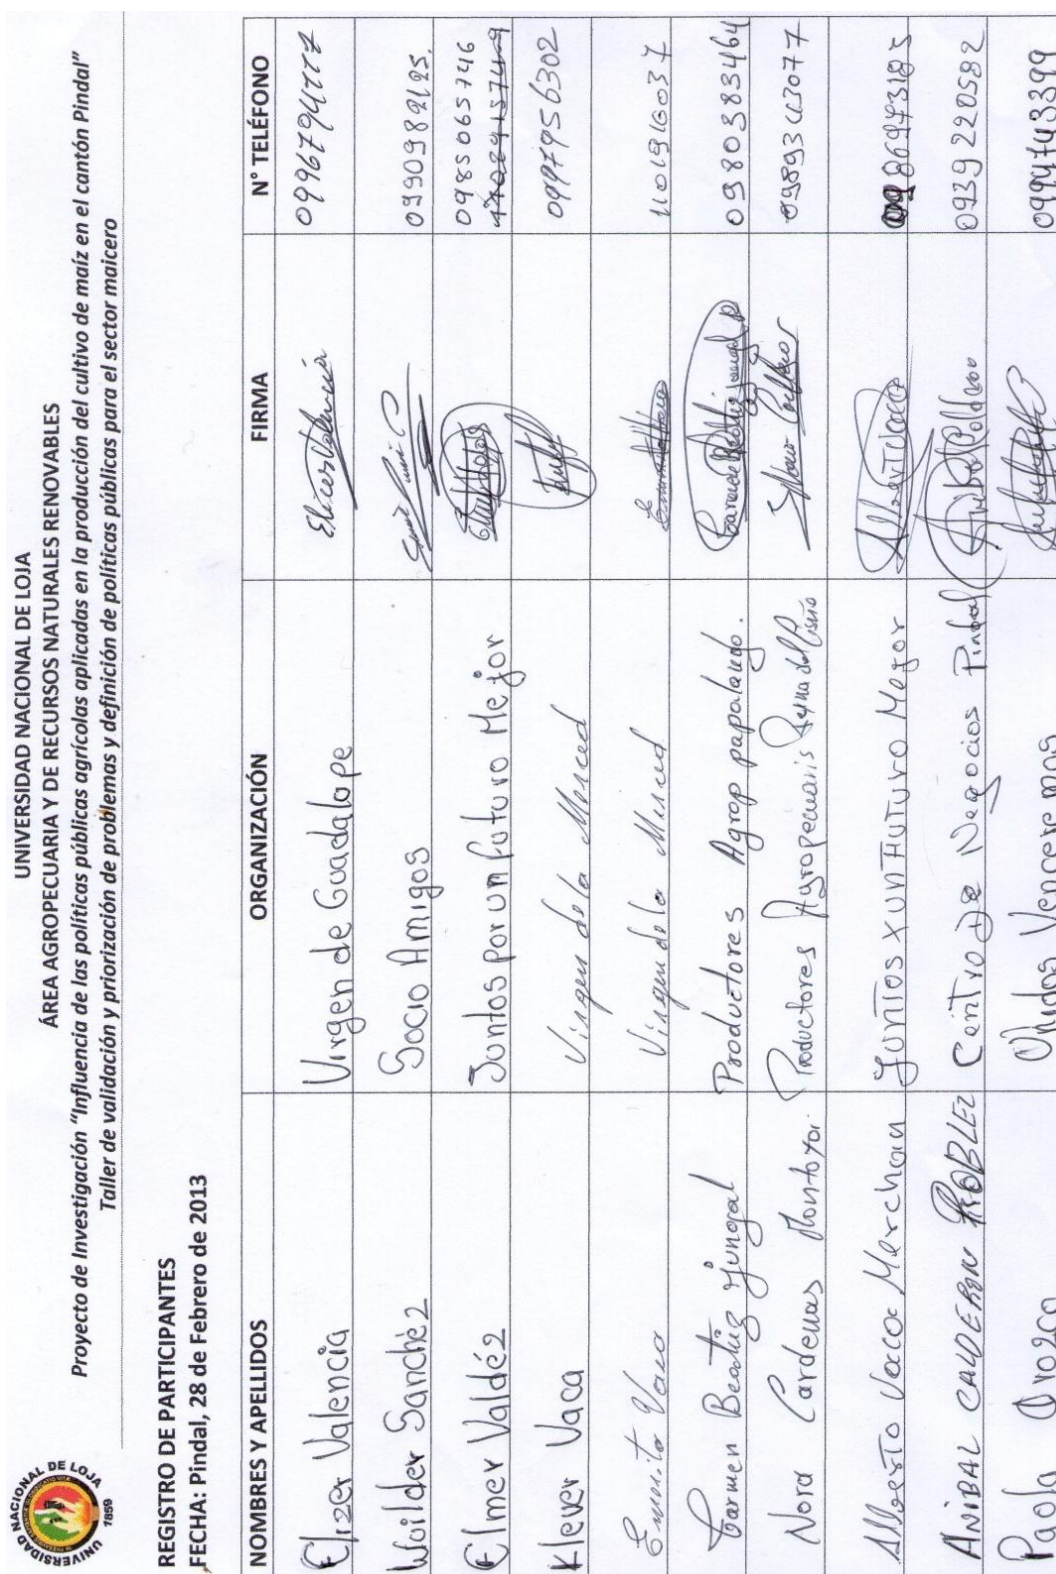 UNIVERSIDAD NACIONAL DE LOJA
ÁREA AGROPECUARIA Y DE RECURSOS NATURALES RENOVABLES
Proyecto de Investigación "Influencia de las políticas públicas agrícolas aplicadas en la producción del cultivo de maíz en el cantón Pindal"
Taller de validación y priorización de problemas y definición de políticas públicas para el sector maicero
UNIVERSIDAD NACIONAL DE LOJA
1859
REGISTRO DE PARTICIPANTES
FECHA: Pindal, 28 de Febrero de 2013
NOMBRES Y APELLIDOS ORGANIZACIÓN FIRMA N° TELÉFONO
Elizer Valencia Virgen de Guadalope Elicer Valencia
Wuilder Sanchéz Socio Amigos 0390989125.
Elmer Valdéz Juntos por un futuro Mejor 0985065746
Klever Vaca Virgen de la Merced 0997956302
Vaca Virgen de la Merced 1101916037
Carmen Beatriz Productores Agrop papalango. 0980383464
Nora Cardenas Montoya. Productores Agropecuarios Reyna del Cisne
Alberto Vaca Merchan JUNTOS X UN FUTURO Mejor 0986973185
ANIBAL CALDERON ROBLEZ Centro De Negocios Pindal 0939220582
Paola Orozco Unidos Venceremos 0994743399